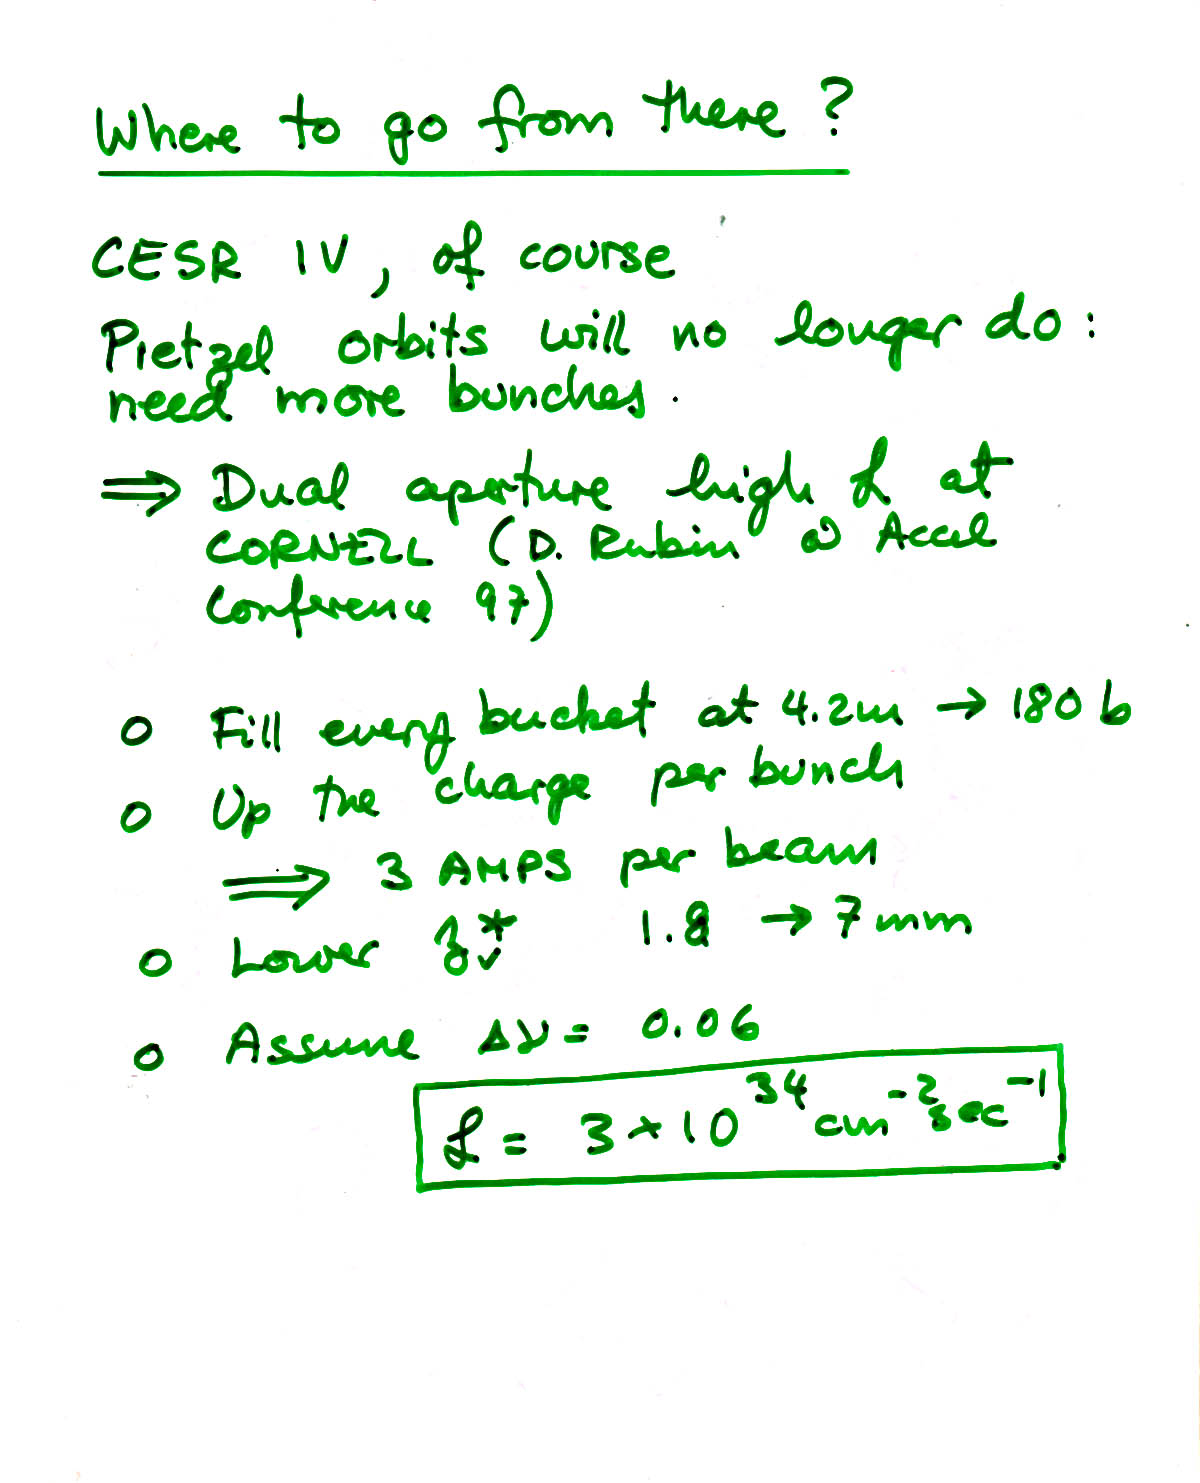 Where to go from there?
CESR IV, of course
Pretzel orbits will no longer do:
need more bunches.
⇒ Dual aperture high ℒ at
CORNELL (D. Rubin @ Accel
Conference 97)
o Fill every bucket at 4.2m → 180 b
o Up the charge per bunch
⇒ 3 AMPS per beam
o Lower β*v 1.8 → 7mm
o Assume Δν = 0.06
ℒ = 3 × 10^34 cm^-2 sec^-1